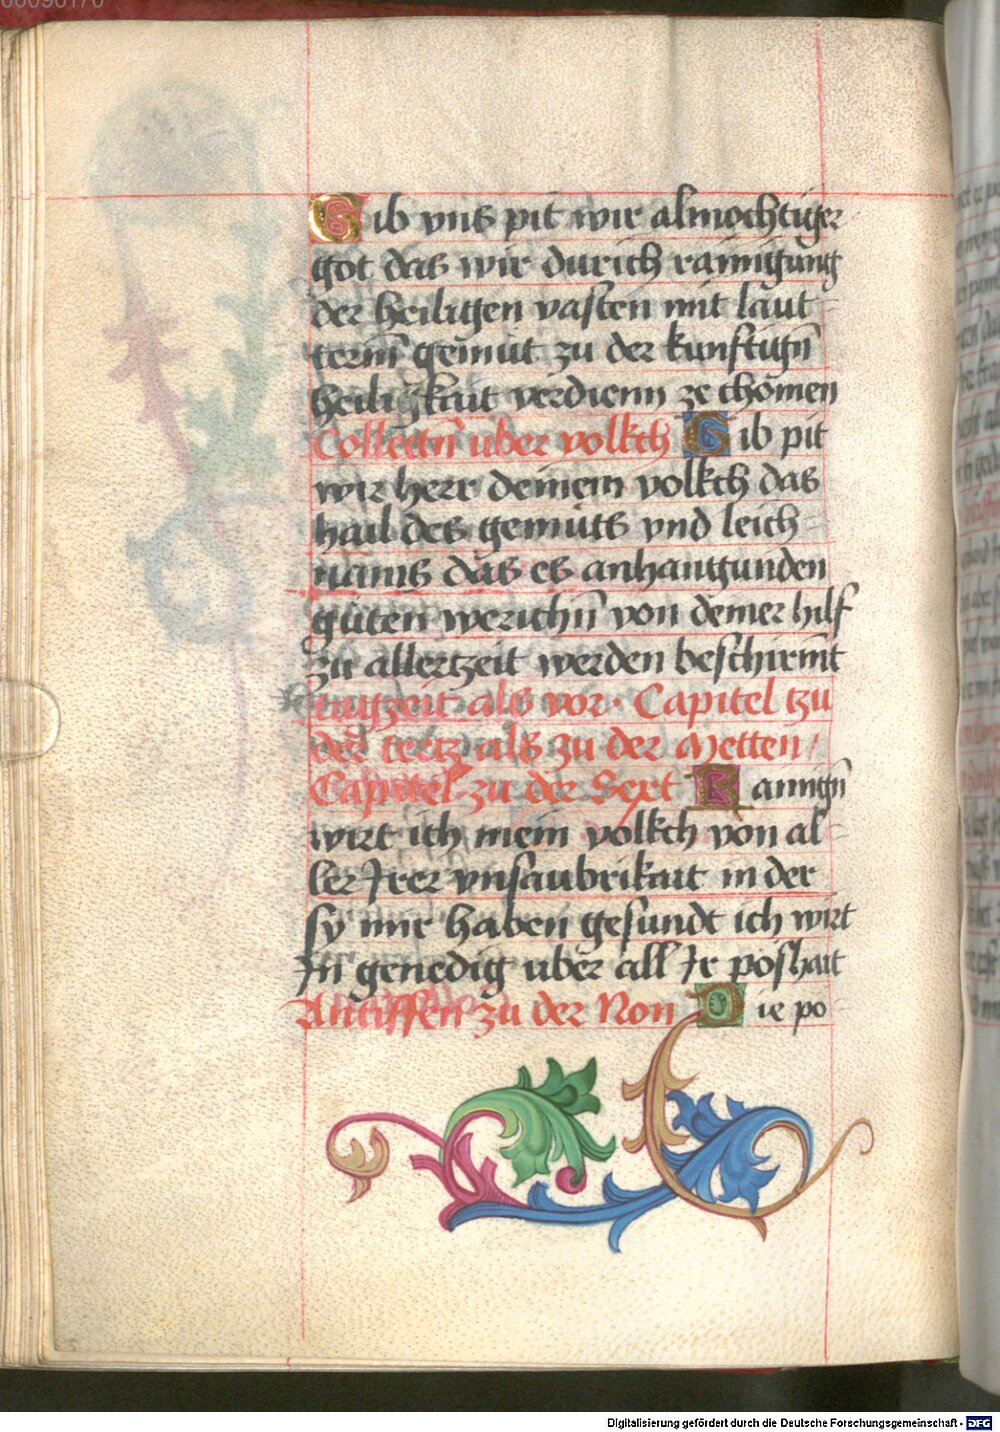 Gib vns pit wir almochtiger
got das wir durich rainigung
der heiligen vasten mit laut=
term̄ gemut zu der kunftign̄
heiligkait verdienn ze chömen
Collectn̄ uber volkch Gib pit
wir herr deinem volkch das
hail des gemüts vnd leich=
nams das es anhangunden
güten werichn̄ von deiner hilf
zu allertzeit werden beschirm̄t
tagzeit als vor. Capitel tzu
der tertz als zu der Metten /
Capitel zu der Sext Rainign̄
wirt ich mein volkch von al=
ler Irer vnsaubrikait in der
sy mir haben gesundt ich wirt
In genedig uber all Ir poshait
Antiffen zu der Non Die po
Digitalisierung gefördert durch die Deutsche Forschungsgemeinschaft - DFG